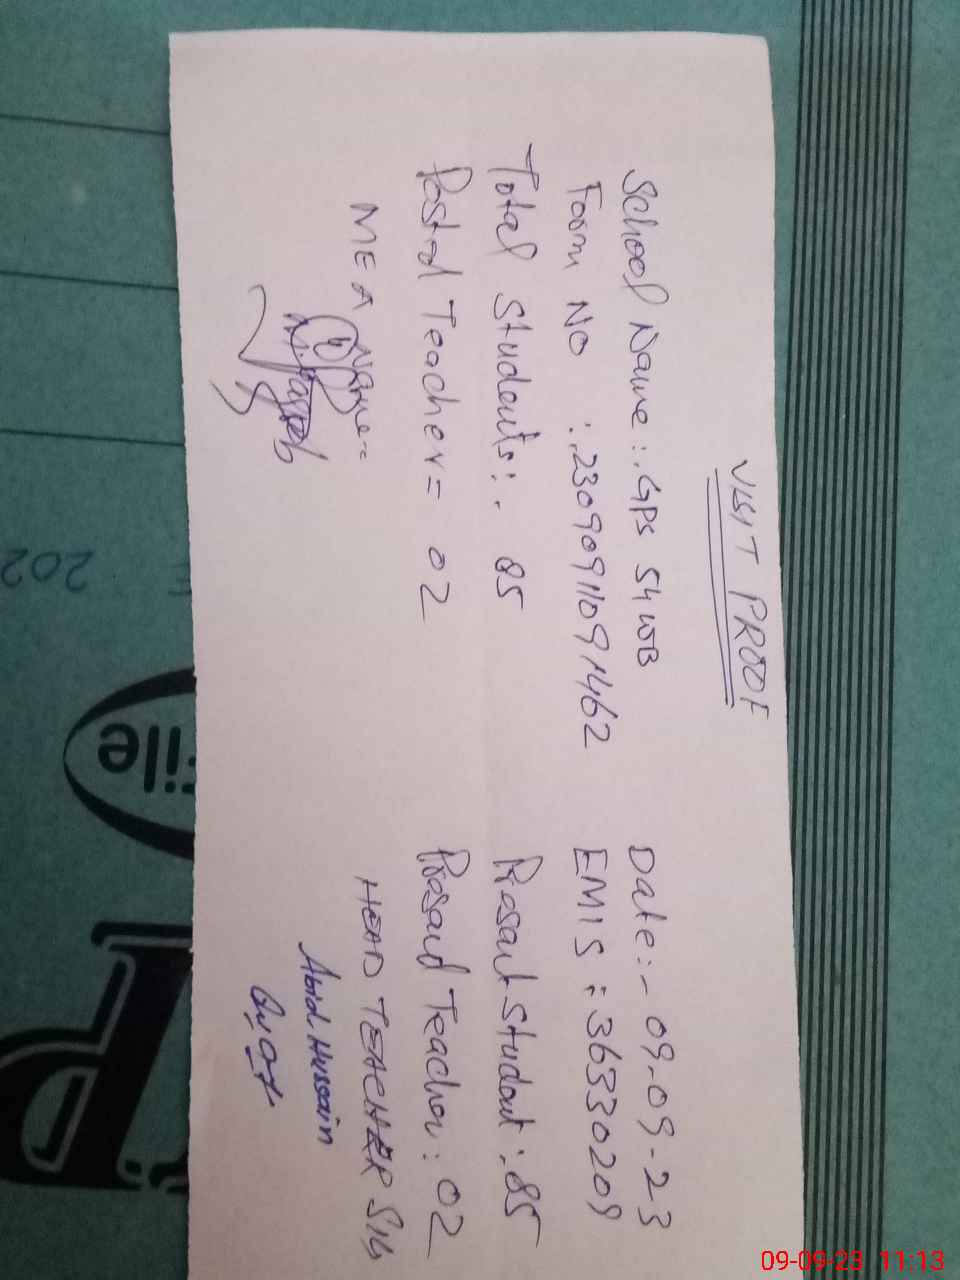 VISIT PROOF
School Name :. GPS 54 WB
Date:- 09-09-23
Form NO :. 23090911091462
EMIS : 36330209
Total Students: . 85
Present Student : 85
Posted Teacher = 02
Present Teacher : 02
MEA Name
HEAD TEACHER Sig
Abid Hussain
202
File
09-09-23 11:13